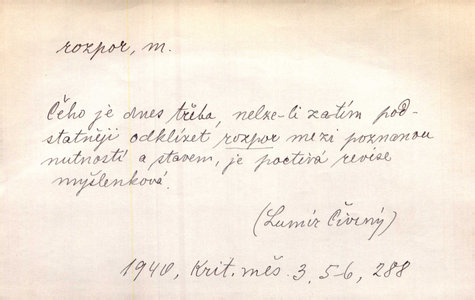 rozpor, m.
Čeho je dnes třeba, nelze-li zatím pod-
statněji odklízet rozpor mezi poznanou
nutností a stavem, je poctivá revise
myšlenková.
(Lumír Čivrný)
1940, Krit. měs. 3, 5-6, 288